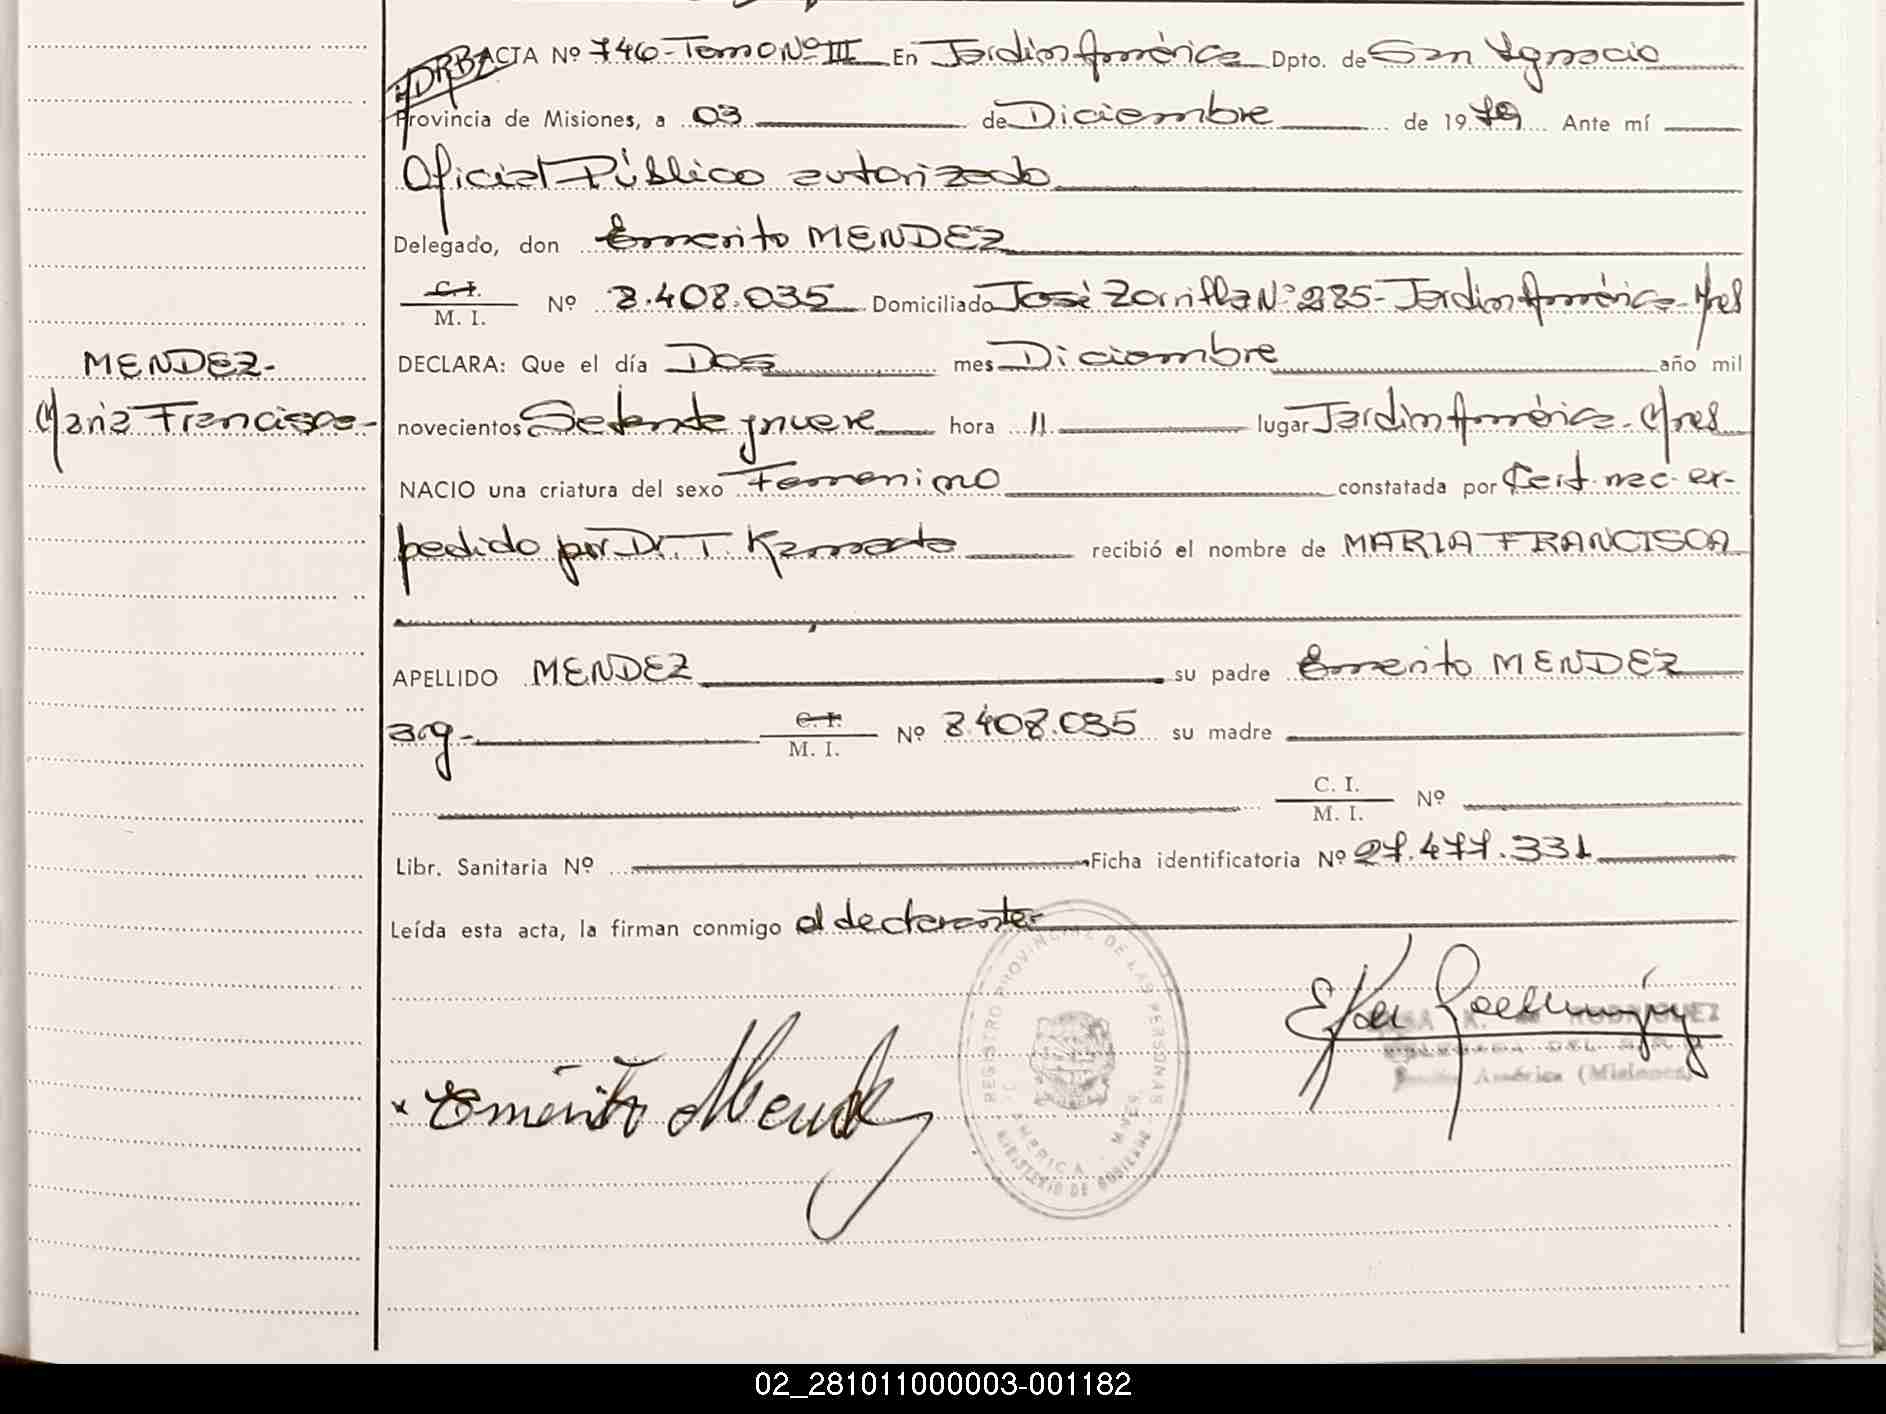 ACTA Nº 746-Tomo Nº III En Jardín América Dpto. de San Ignacio
Provincia de Misiones, a 03 de Diciembre de 1979 Ante mí
Oficial Público autorizado
Delegado, don Emerito MENDEZ
C. I.
M. I. Nº 8.408.035 Domiciliado José Zorrilla Nº 285-Jardín América-Mnes
MENDEZ-
DECLARA: Que el día Dos mes Diciembre año mil
María Francisca-
novecientos Setenta y nueve hora 11 lugar Jardín América-Mnes
NACIO una criatura del sexo Femenino constatada por Cert. nac. ex-
pedido por Dr. T. recibió el nombre de MARIA FRANCISCA
APELLIDO MENDEZ su padre Emerito MENDEZ
arg- C. I.
M. I. Nº 8.408.035 su madre
C. I.
M. I. Nº
Libr. Sanitaria Nº Ficha identificatoria Nº 27.477.331
Leída esta acta, la firman conmigo el declarante-
REGISTRO PROVINCIAL DE LAS PERSONAS
AMERICA - MNES.
MINISTERIO DE GOBIERNO
RODRIGUEZ
DELEGADA DEL
América (Misiones)
x Emérito Mendez
02_281011000003-001182